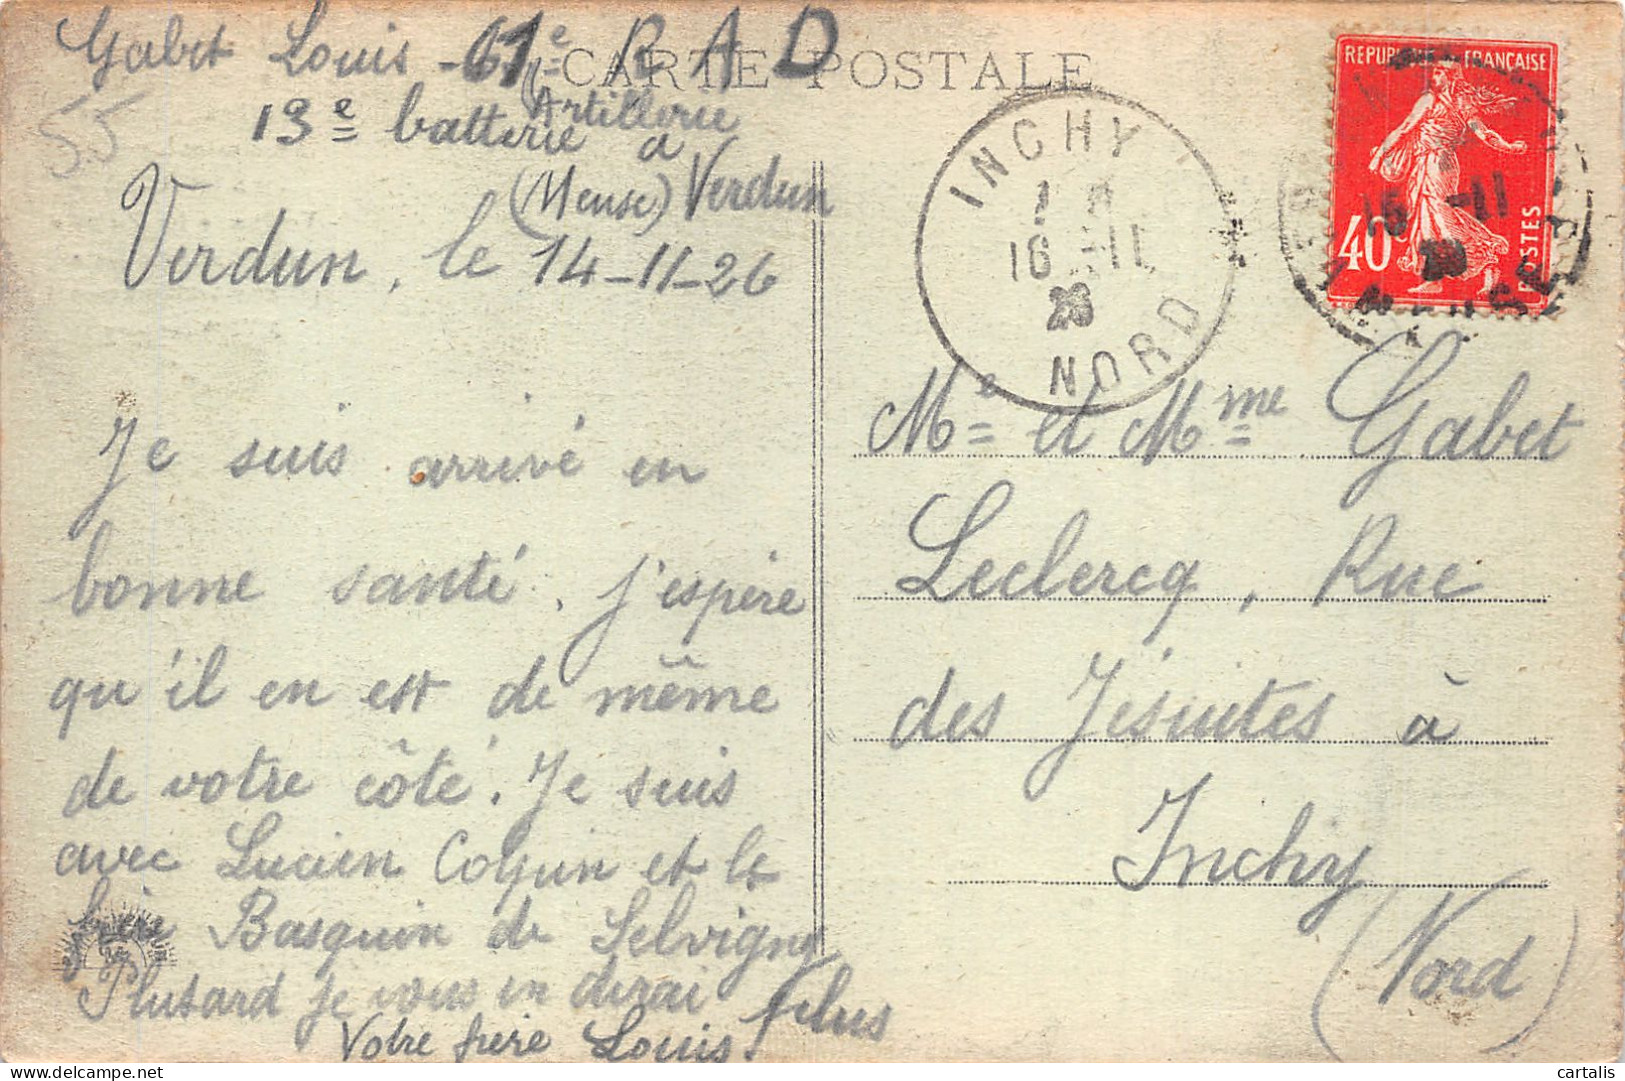 Gabet Louis 61e R A D
CARTE POSTALE
Artillerie
13e batterie à
(Meuse) Verdun
55
Verdun, le 14-11-26
Je suis arrivé en
bonne santé. J'espère
qu'il en est de même
de votre côté. Je suis
avec Lucien Coquin et le
frère Basquin de Selvigny
Plutard je vous en dirai plus
Votre frère Louis
INCHY
16 -11
26
NORD
REPUBLIQUE FRANÇAISE
40c
POSTES
16 -11
26
MEUSE
Me et Mme Gabet
Leclercq, Rue
des Jésuites à
Inchy
(Nord)
cartalis